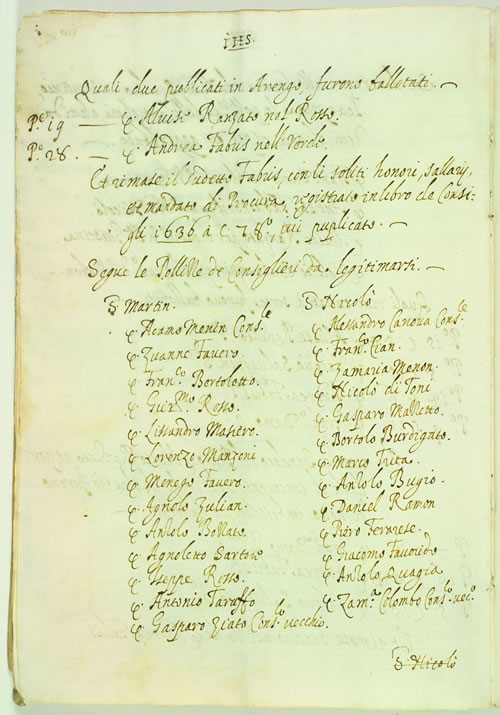 IHS.
Quali due publicati in Arengo, furono ballotati. —
P.e 19 — φ. Aluise Ranzato nel Rosso.
P.e 28. — φ. Andrea Fabris nell Verde.
Et rimase il sudetto Fabris, con li soliti honori, sallarij,
et mandato di Procura, registrato in libro de Consi-
gli 1636 à c. 78.o, qui publicato. —
Segue le Pollize de Consiglieri da legitimarsi. —
S. Martin.
φ. Acamo Menin Cons.le
φ. Zuanne Favero.
φ. Fran.co Bortoletto.
φ. Gier.mo Rosso.
φ. Lissandro Masiero.
φ. Lorenzo Manzoni
φ. Menego Favero.
φ. Agnolo Zulian.
φ. Antolo Bollato.
φ. Agnoletto Sartore
φ. Iseppe Rosso.
φ. Antonio Taruffo
φ. Gasparo Ziato Cons.o vecchio.
S. Nicolò
φ. Alessandro Canova Cons.le
φ. Fran.co Cian.
φ. Zamaria Menon.
φ. Nicolò di Toni
φ. Gasparo Malletto.
φ. Bortolo Burdigato.
φ. Marco Trita.
φ. Antolo Bugio.
φ. Daniel Ramon
φ. Piero Ferrarese.
φ. Giacomo Favorido
φ. Antolo Quagia
φ. Zam.a Colombo Cons.o vec.o
S. Nicolò